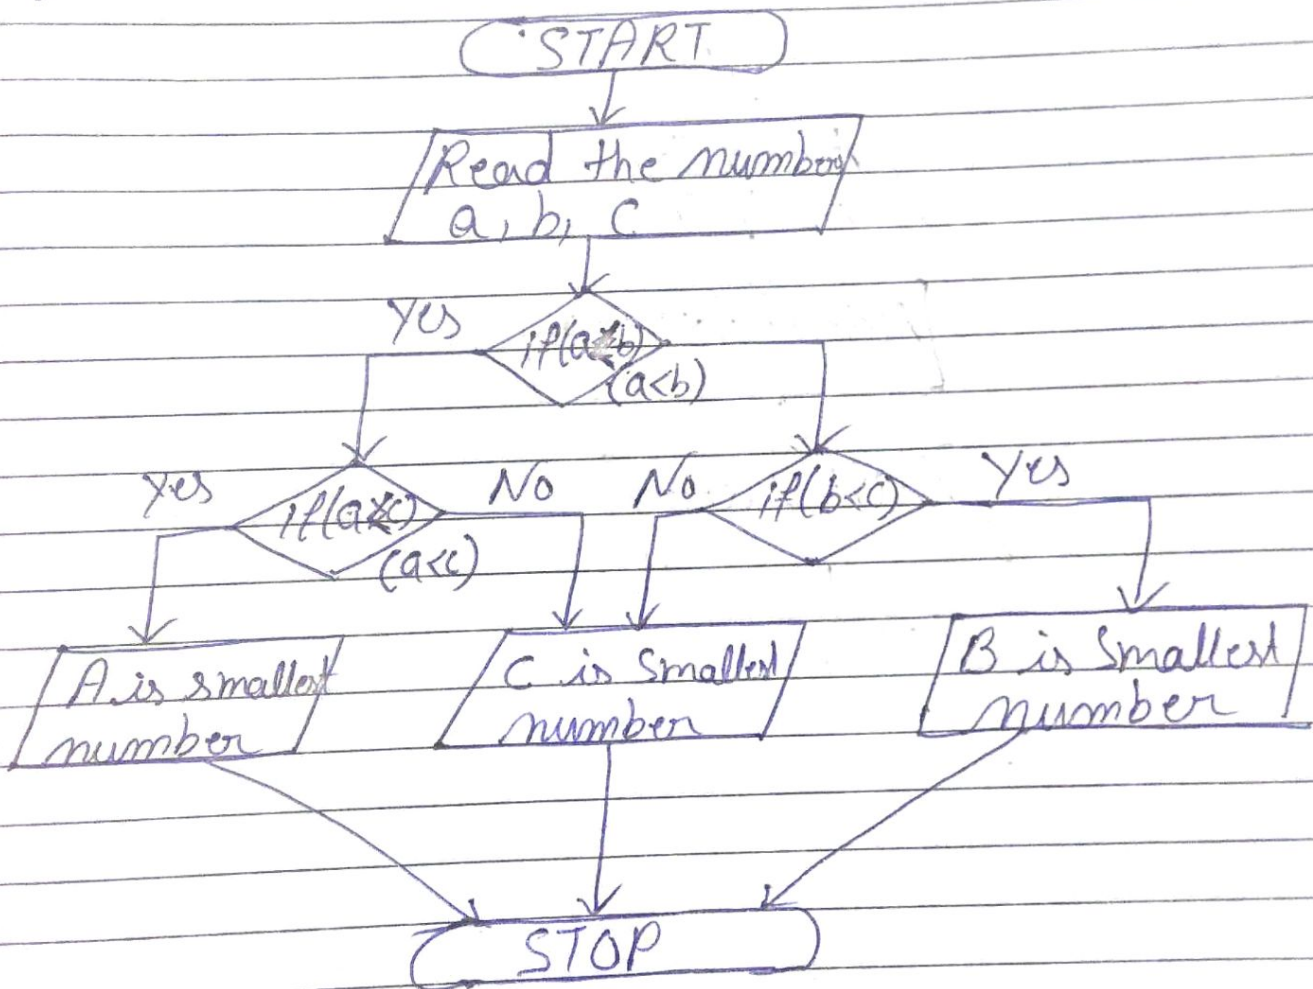 START
Read the number
a, b, c
Yes
if(a<b)
(a<b)
Yes
if(a<c)
(a<c)
No
No
if(b<c)
Yes
A is smallest
number
C is Smallest
number
B is Smallest
number
STOP